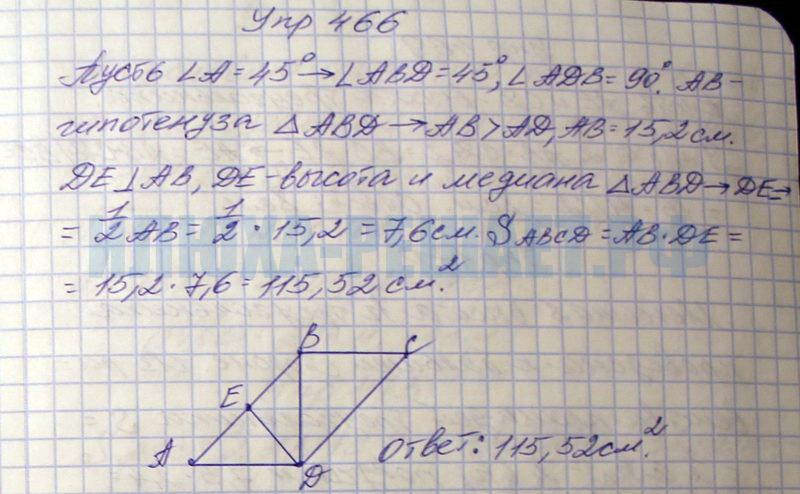 Упр 466
Пусть ∠A = 45° → ∠ABD = 45°, ∠ADB = 90°. AB -
гипотенуза △ABD → AB > AD, AB = 15,2 см.
DE ⊥ AB, DE - высота и медиана △ABD → DE =
= 1/2 AB = 1/2 · 15,2 = 7,6 см. SABCD = AB · DE =
= 15,2 · 7,6 = 115,52 см².
B
C
E
A
D
Ответ: 115,52 см².